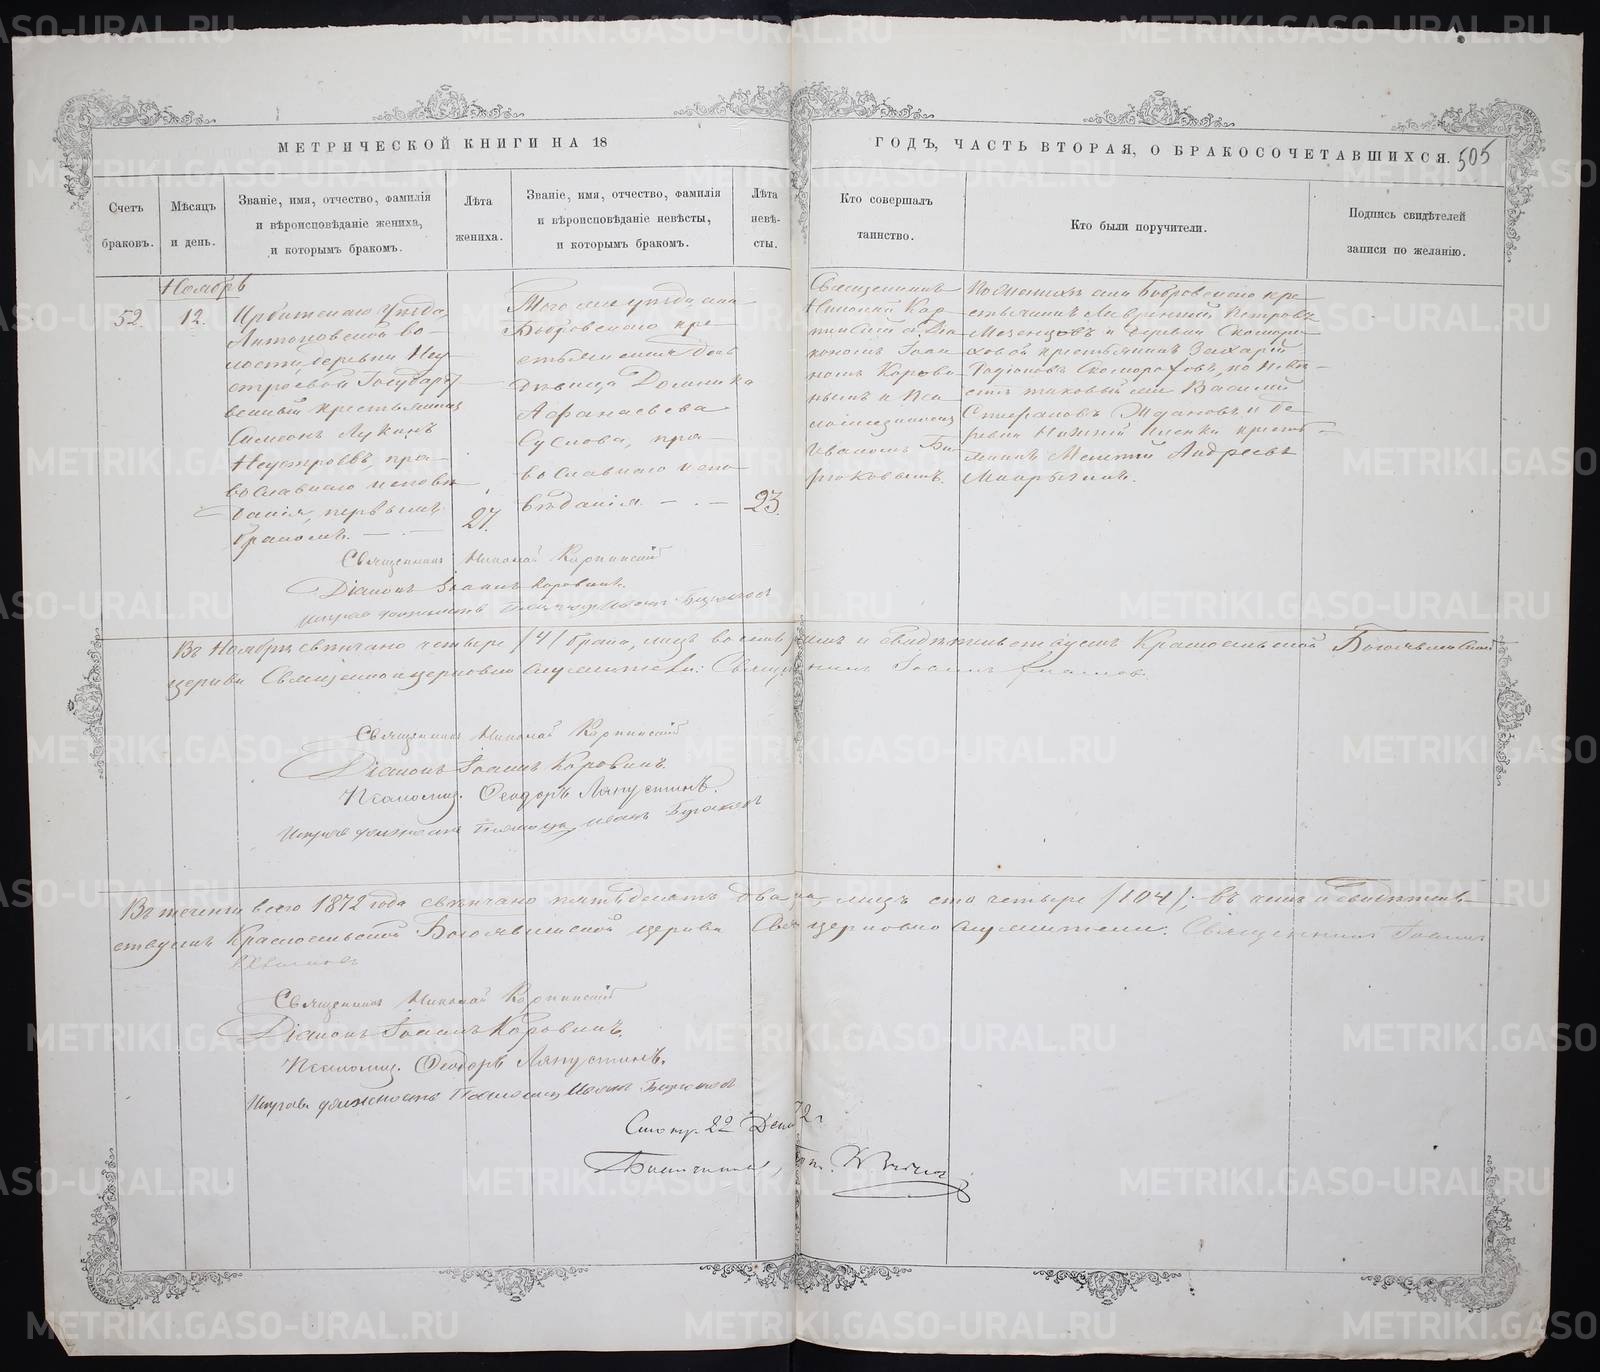 МЕТРИЧЕСКОЙ КНИГИ НА 18
ГОДЪ, ЧАСТЬ ВТОРАЯ, О БРАКОСОЧЕТАВШИХСЯ. 505
Счетъ
браковъ.
Мѣсяцъ
и день.
Званіе, имя, отчество, фамилія
и вѣроисповѣданіе жениха,
и которымъ бракомъ.
Лѣта
жениха.
Званіе, имя, отчество, фамилія
и вѣроисповѣданіе невѣсты,
и которымъ бракомъ.
Лѣта
невѣ-
сты.
Кто совершалъ
таинство.
Кто были поручители.
Подпись свидѣтелей
записи по желанію.
Ноябрь
52.
12.
Ирбитскаго Уѣзда,
Антоновской во-
лости, деревни Неу-
строевой Государст
венный крестьянинъ
Симеонъ Лукинъ
Неустроевъ, пра-
вославнаго исповѣ
данія, первымъ
бракомъ. — . —
27.
Того же уѣзда,
Бобровскаго кре
стьянина дочь
дѣвица Домника
Афанасьева
Суслова, пра-
вославнаго испо-
вѣданія. — . —
23.
Священникъ
Николай Кар-
пинскій съ Діа
кономъ Іоан-
номъ Корови-
нымъ и Пса
ломщикомъ
Иваномъ Би-
рюковымъ.
По женихѣ села Бобровскаго кре-
стьянинъ Лаврентій Петровъ
Мезенцовъ и деревни Скоморо-
ховой крестьянинъ Захарій
Родіоновъ Скомороховъ, по невѣ-
стѣ таковый же Василій
Стефановъ Ждановъ, и де
ревни Нижней крест
янинъ Андреевъ
Священникъ Николай Карпинскій
Діаконъ Іоаннъ Коровинъ.
Исправ должность Псаломщ Иванъ Бирюковъ
Въ Ноябрѣ свѣнчано четыре /4/ брака, лицъ восемь, въ чемъ и свидѣтельствуемъ Красносельской Богоявленской
церкви Священноцерковно служители: Священникъ Іоаннъ
Священникъ Николай Карпинскій
Діаконъ Іоаннъ Коровинъ.
Псаломщ. Ѳеодоръ Ляпустинъ.
Исправ должность Псаломщ Иванъ Бирюковъ
Въ теченіи всего 1872 года свѣнчано пятьдесятъ два лицъ сто четыре /104/; въ чемъ и свидѣтель-
ствуемъ Красносельской Богоявленской церкви церковно служители. Священникъ Іоаннъ
Священникъ Николай Карпинскій
Діаконъ Іоаннъ Коровинъ.
Псаломщ. Ѳеодоръ Ляпустинъ.
Исправ должность Псаломщ Иванъ Бирюковъ
22 Дек 72 г
METRIKI.GASO-URAL.RU